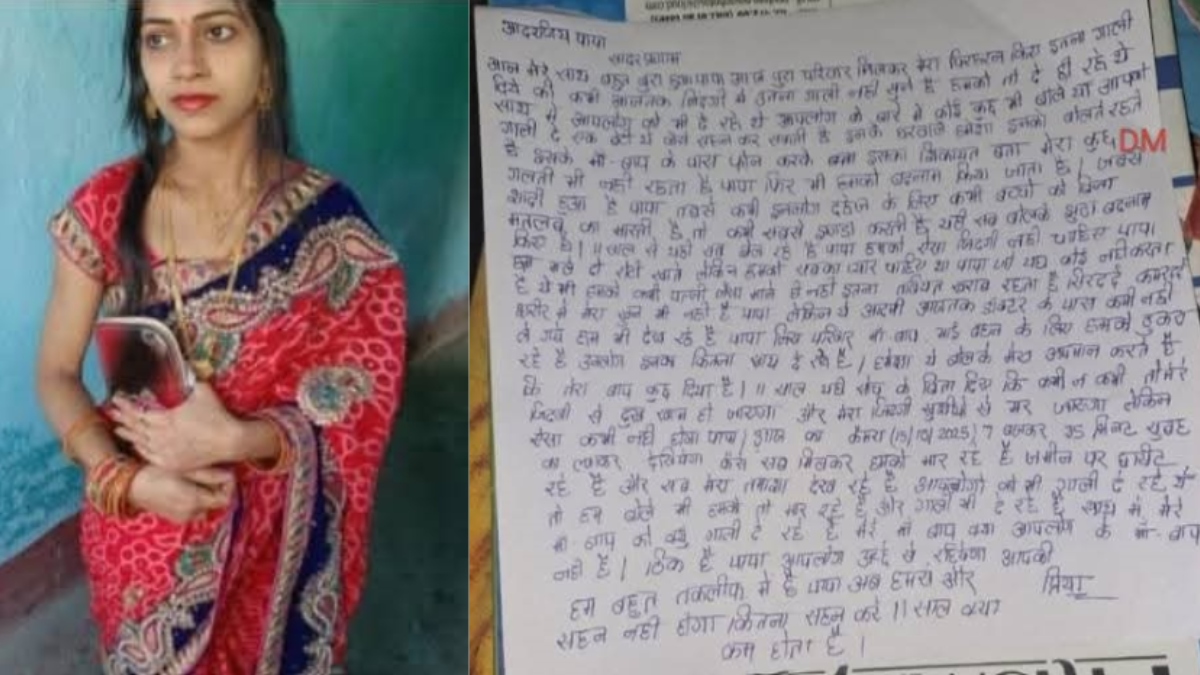 आदरणिय पापा
सादर प्रणाम
आज मेरे साथ बहुत बुरा हुआ पापा आज पुरा परिवार मिलकर मेरा किया इतना गाली
दिये की कभी आजतक जिंदगी में इतना गाली नहीं सुने है हमको तो दे ही रहे थे
साथ में आपलोग को भी दे रहे थे आपलोग के बारे में कोई कुछ भी बोले या आपको
गाली दे एक बेटी ये कैसे सहन कर सकती है इनके घरवाले हमेशा इनको बोलते रहते
है इसके माँ-बाप के पास फोन करके बता इसका शिकायत बता मेरा कुछ DM
गलती भी नहीं रहता है पापा फिर भी हमको बदनाम किया जाता है। जबसे
शादी हुआ है पापा तबसे कभी इनलोग दहेज के लिए कभी बच्चों को बिना
मतलब का मारती है, तो कभी सबसे झगड़ा करती है यही सब बोलके झुठा बदनाम
किए है। 11 साल से यही सब झेल रहे है पापा हमको ऐसा जिंदगी नहीं चाहिए पापा
हम भले दो रोटी खाते लेकिन हमको सबका प्यार चाहिए था पापा जो यहाँ कोई नहीं करता
है ये भी हमको कभी पत्नी जैसा माने ही नहीं इतना तबियत खराब रहता है सिरदर्द कमरदर्द
शरीर में मेरा खून भी नहीं है पापा लेकिन ये आदमी आजतक डॉक्टर के पास कभी नहीं
ले गये हम भी देख रहे है पापा जिस परिवार माँ-बाप, भाई बहन के लिए हमको ठुकरा
रहे है उनलोग इनका कितना साथ दे रहे है। हमेशा ये बोलके मेरा अपमान करते है
कि तेरा बाप कुछ दिया है। 11 साल यही सोच के बिता दिए कि कभी न कभी तो मेरे
जिंदगी से दुख खत्म हो जाएगा और मेरा जिंदगी खुशियों से भर जाएगा लेकिन
ऐसा कभी नहीं होगा पापा। आज का कैमरा (15/10/2025) 7 बजकर 35 मिनट सुबह
का लगाकर देखियेगा कैसे सब मिलकर हमको मार रहे है जमीन पर घसीट
रहे है और सब मेरा तमाशा देख रहे है आपलोगो को भी गाली दे रहे थे
तो हम बोले भी हमको तो मार रहे है और गाली भी दे रहे है साथ में मेरे
माँ-बाप को क्यु गाली दे रहे है मेरे माँ बाप क्या आपलोग के माँ-बाप
नहीं है। ठीक है पापा आपलोग अच्छे से रहियेगा आपकी
हम बहुत तकलीफ में है पापा अब हमसे और प्रिया
सहन नहीं होगा कितना सहन करे 11 साल क्या
कम होता है।